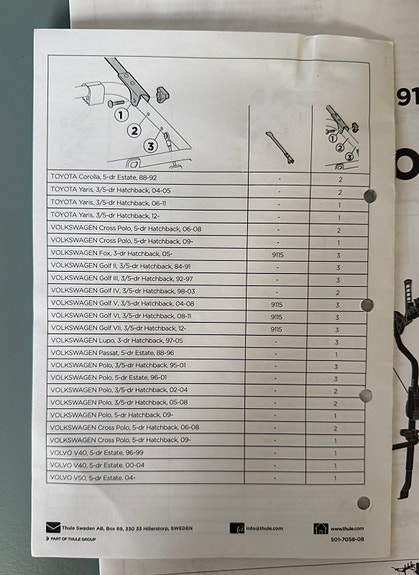 1
2
3
1
2
3
TOYOTA Corolla, 5-dr Estate, 88-92 - 2
TOYOTA Yaris, 3/5-dr Hatchback, 04-05 - 2
TOYOTA Yaris, 3/5-dr Hatchback, 06-11 - 1
TOYOTA Yaris, 3/5-dr Hatchback, 12- - 1
VOLKSWAGEN Cross Polo, 5-dr Hatchback, 06-08 - 2
VOLKSWAGEN Cross Polo, 5-dr Hatchback, 09- - 1
VOLKSWAGEN Fox, 3-dr Hatchback, 05- 9115 3
VOLKSWAGEN Golf II, 3/5-dr Hatchback, 84-91 - 3
VOLKSWAGEN Golf III, 3/5-dr Hatchback, 92-97 - 3
VOLKSWAGEN Golf IV, 3/5-dr Hatchback, 98-03 - 2
VOLKSWAGEN Golf V, 3/5-dr Hatchback, 04-08 9115 3
VOLKSWAGEN Golf VI, 3/5-dr Hatchback, 08-11 9115 3
VOLKSWAGEN Golf VII, 3/5-dr Hatchback, 12- 9115 3
VOLKSWAGEN Lupo, 3-dr Hatchback, 97-05 - 3
VOLKSWAGEN Passat, 5-dr Estate, 88-96 - 1
VOLKSWAGEN Polo, 3/5-dr Hatchback, 95-01 - 3
VOLKSWAGEN Polo, 5-dr Estate, 96-01 - 3
VOLKSWAGEN Polo, 3/5-dr Hatchback, 02-04 - 2
VOLKSWAGEN Polo, 3/5-dr Hatchback, 05-08 - 2
VOLKSWAGEN Polo, 5-dr Hatchback, 09- - 1
VOLKSWAGEN Cross Polo, 5-dr Hatchback, 06-08 - 2
VOLKSWAGEN Cross Polo, 5-dr Hatchback, 09- - 1
VOLVO V40, 5-dr Estate, 96-99 - 1
VOLVO V40, 5-dr Estate, 00-04 - 1
VOLVO V50, 5-dr Estate, 04- - 1
Thule Sweden AB, Box 69, 330 33 Hillerstorp, SWEDEN info@thule.com www.thule.com
PART OF THULE GROUP 501-7058-08
91